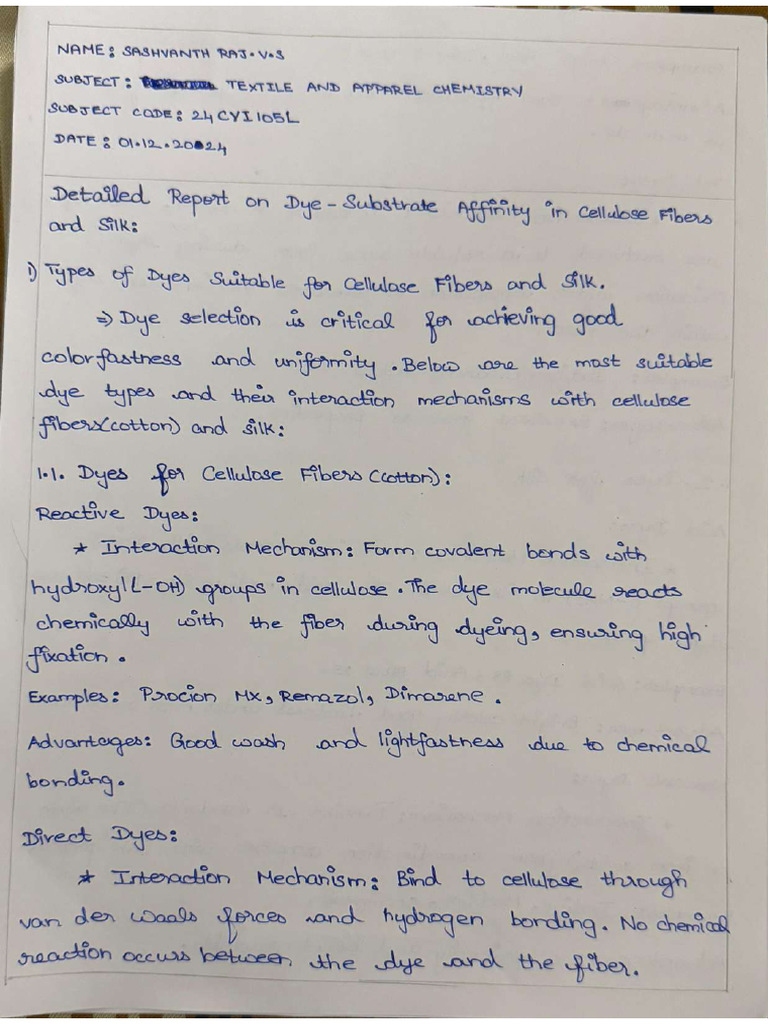 NAME: SASHVANTH RAJ.V.S
SUBJECT: TEXTILE AND APPAREL CHEMISTRY
SUBJECT CODE: 24CYI105L
DATE: 01.12.2024
Detailed Report on Dye-Substrate Affinity in Cellulose Fibers
and Silk:
1) Types of Dyes Suitable for Cellulase Fibers and Silk.
⇒ Dye selection is critical for achieving good
colorfastness and uniformity. Below are the most suitable
dye types and their interaction mechanisms with cellulose
fibers(cotton) and silk:
1.1. Dyes for Cellulose Fibers (cotton):
Reactive Dyes:
* Interaction Mechanism: Form covalent bonds with
hydroxyl(-OH) groups in cellulose. The dye molecule reacts
chemically with the fiber during dyeing, ensuring high
fixation.
Examples: Procion MX, Remazol, Dimarene.
Advantages: Good wash and lightfastness due to chemical
bonding.
Direct Dyes:
* Interaction Mechanism: Bind to cellulose through
van der waals forces and hydrogen bonding. No chemical
reaction occurs between the dye and the fiber.